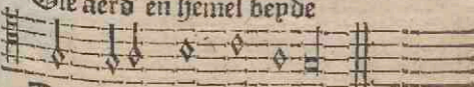 Die aerd en hemel beyde